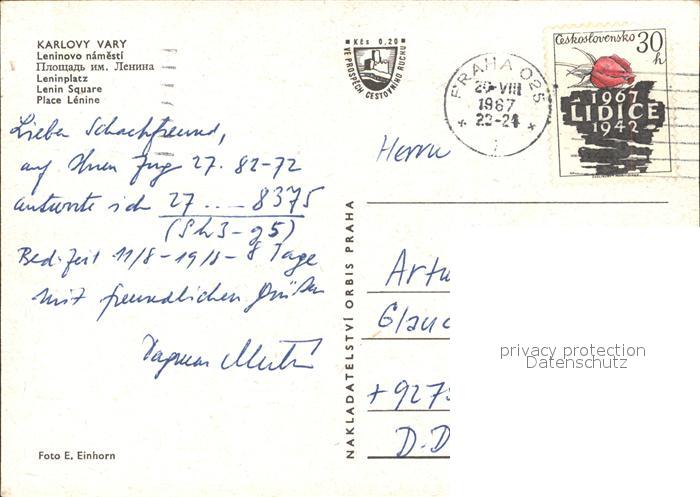 KARLOVY VARY
Leninovo náměstí
Площадь им. Ленина
Leninplatz
Lenin Square
Place Lénine
Lieber Schachfreund,
auf Ihren Zug 27. 82-72
antworte ich 27 ... - 8375
(Sh3-g5)
Bed. Zeit 11/8 - 19/8 - 8 Tage
Mit freundlichen Grüßen
Dagmar
Foto E. Einhorn
NAKLADATELSTVÍ ORBIS PRAHA
Kčs 0,20
VE PROSPĚCH CESTOVNÍHO RUCHU
PRAHA 025
20-VIII
1967
22-24
Československo 30 h
1967
LIDICE
1942
Herrn
Artu
Glauc
+927
D-D
privacy protection
Datenschutz